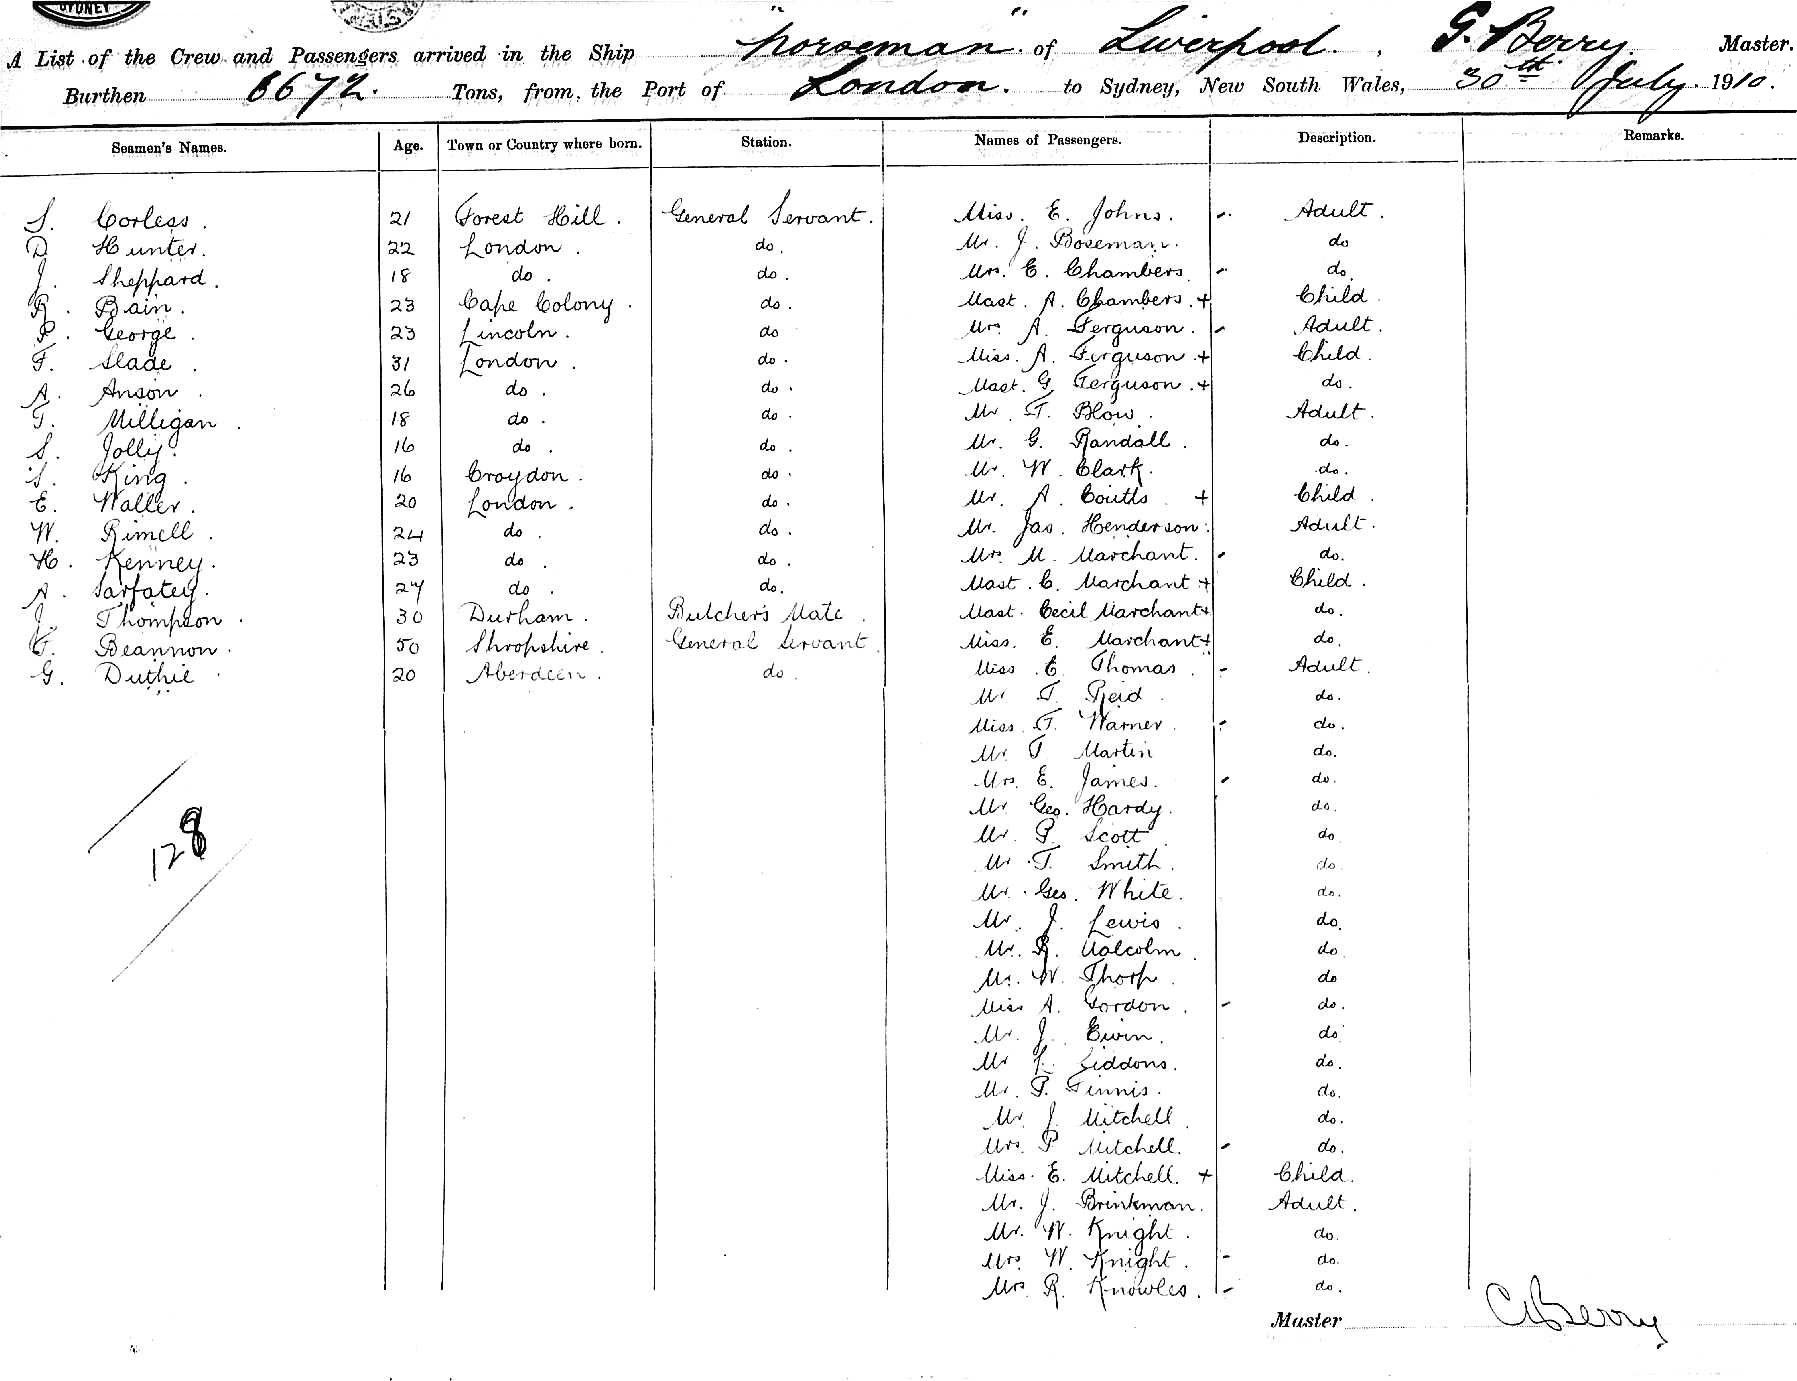 SYDNEY
A List of the Crew and Passengers arrived in the Ship "Norseman" of Liverpool. , G. Berry. Master.
Burthen 6672. Tons, from the Port of London. to Sydney, New South Wales, 30th July. 1910.
Seamen's Names. Age. Town or Country where born. Station. Names of Passengers. Description. Remarks.
S. Corless. 21 Forest Hill. General Servant. Miss. E. Johns. - Adult.
D Hunter. 22 London. do. Mr. J. Boseman. do
J. Sheppard. 18 do. do. Mrs. E. Chambers. - do.
R. Bain. 23 Cape Colony. do. Mast. A. Chambers. + Child
P. George. 23 Lincoln. do Mrs A. Ferguson. - Adult.
F. Slade. 31 London. do. Miss. A. Ferguson + Child.
A. Anson. 26 do. do. Mast. G. Ferguson. + do.
T. Milligan. 18 do. do. Mr. T. Blow. Adult.
S. Jolly. 16 do. do. Mr. G. Randall. do.
S. King. 16 Croydon. do. Mr. W. Clark. do.
E. Waller. 20 London. do. Mr. A. Coutts + Child.
W. Rimell. 24 do. do. Mr. Jas. Henderson. Adult.
H. Kenney. 23 do. do. Mrs M. Marchant. - do.
A. Sarfatey. 27 do. do. Mast. C. Marchant + Child.
J. Thompson. 30 Durham. Butcher's Mate. Mast. Cecil Marchant + do.
Beannon. 50 Shropshire. General Servant. Miss. E. Marchant + do.
G. Duthie. 20 Aberdeen. do. Miss. E. Thomas. - Adult.
Mr T. Reid. do.
Miss. T. Warner. - do.
Mr. T Martin do.
Mrs. E. James. - do.
Mr Geo. Hardy. do.
Mr. P. Scott do
Mr. T. Smith. do.
Mr. Geo. White. do.
Mr. J. Lewis. do.
Mr. R. Malcolm. do
Mr. W. Thorp. do
Miss A. Gordon. - do.
Mr. J. Ewin. do
Mr L. Siddons. do.
Mr. P. Finnis. do.
Mr. J. Mitchell. do.
Mrs. P Mitchell. - do.
Miss. E. Mitchell. + Child.
Mr. J. Brinkman. Adult.
Mr. W. Knight. do.
Mrs. W. Knight. - do.
Mrs. R. Knowles. - do.
128
Master C Berry